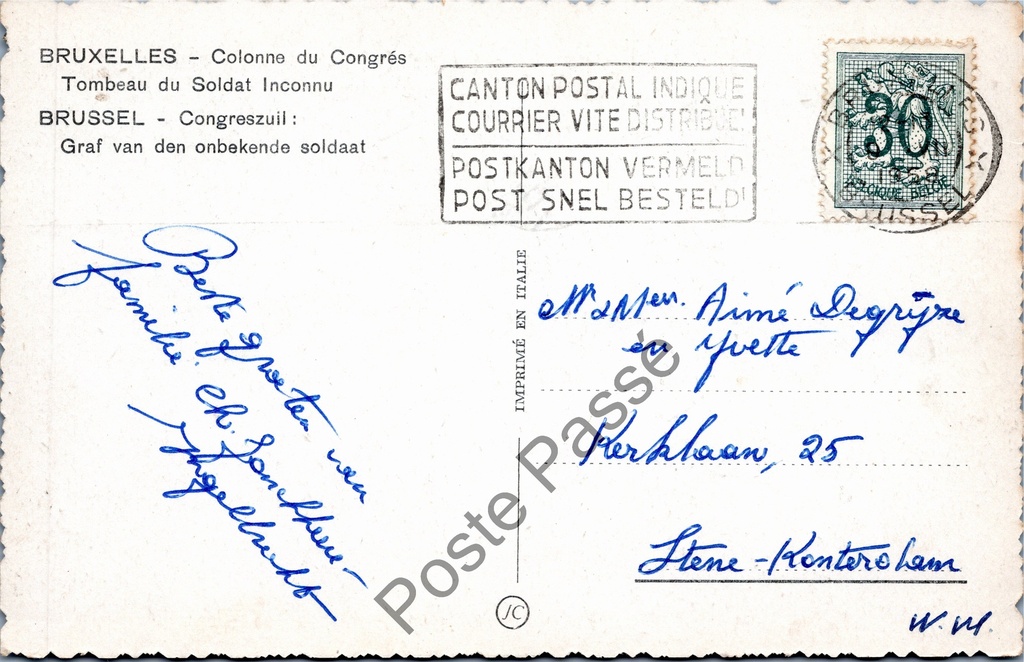 BRUXELLES – Colonne du Congrés
Tombeau du Soldat Inconnu
BRUSSEL – Congreszuil :
Graf van den onbekende soldaat
CANTON POSTAL INDIQUE
COURRIER VITE DISTRIBUE!
POSTKANTON VERMELD
POST SNEL BESTELD!
30
BELGIQUE BELGIE
Beste groeten van
familie ch.
Yngelbrecht
IMPRIMÉ EN ITALIE
Mr & Mevr. Aimé Degrijze
en Yvette
Kerklaan, 25
Stene-Konterdam
W. Vl.
JC
Poste Passé